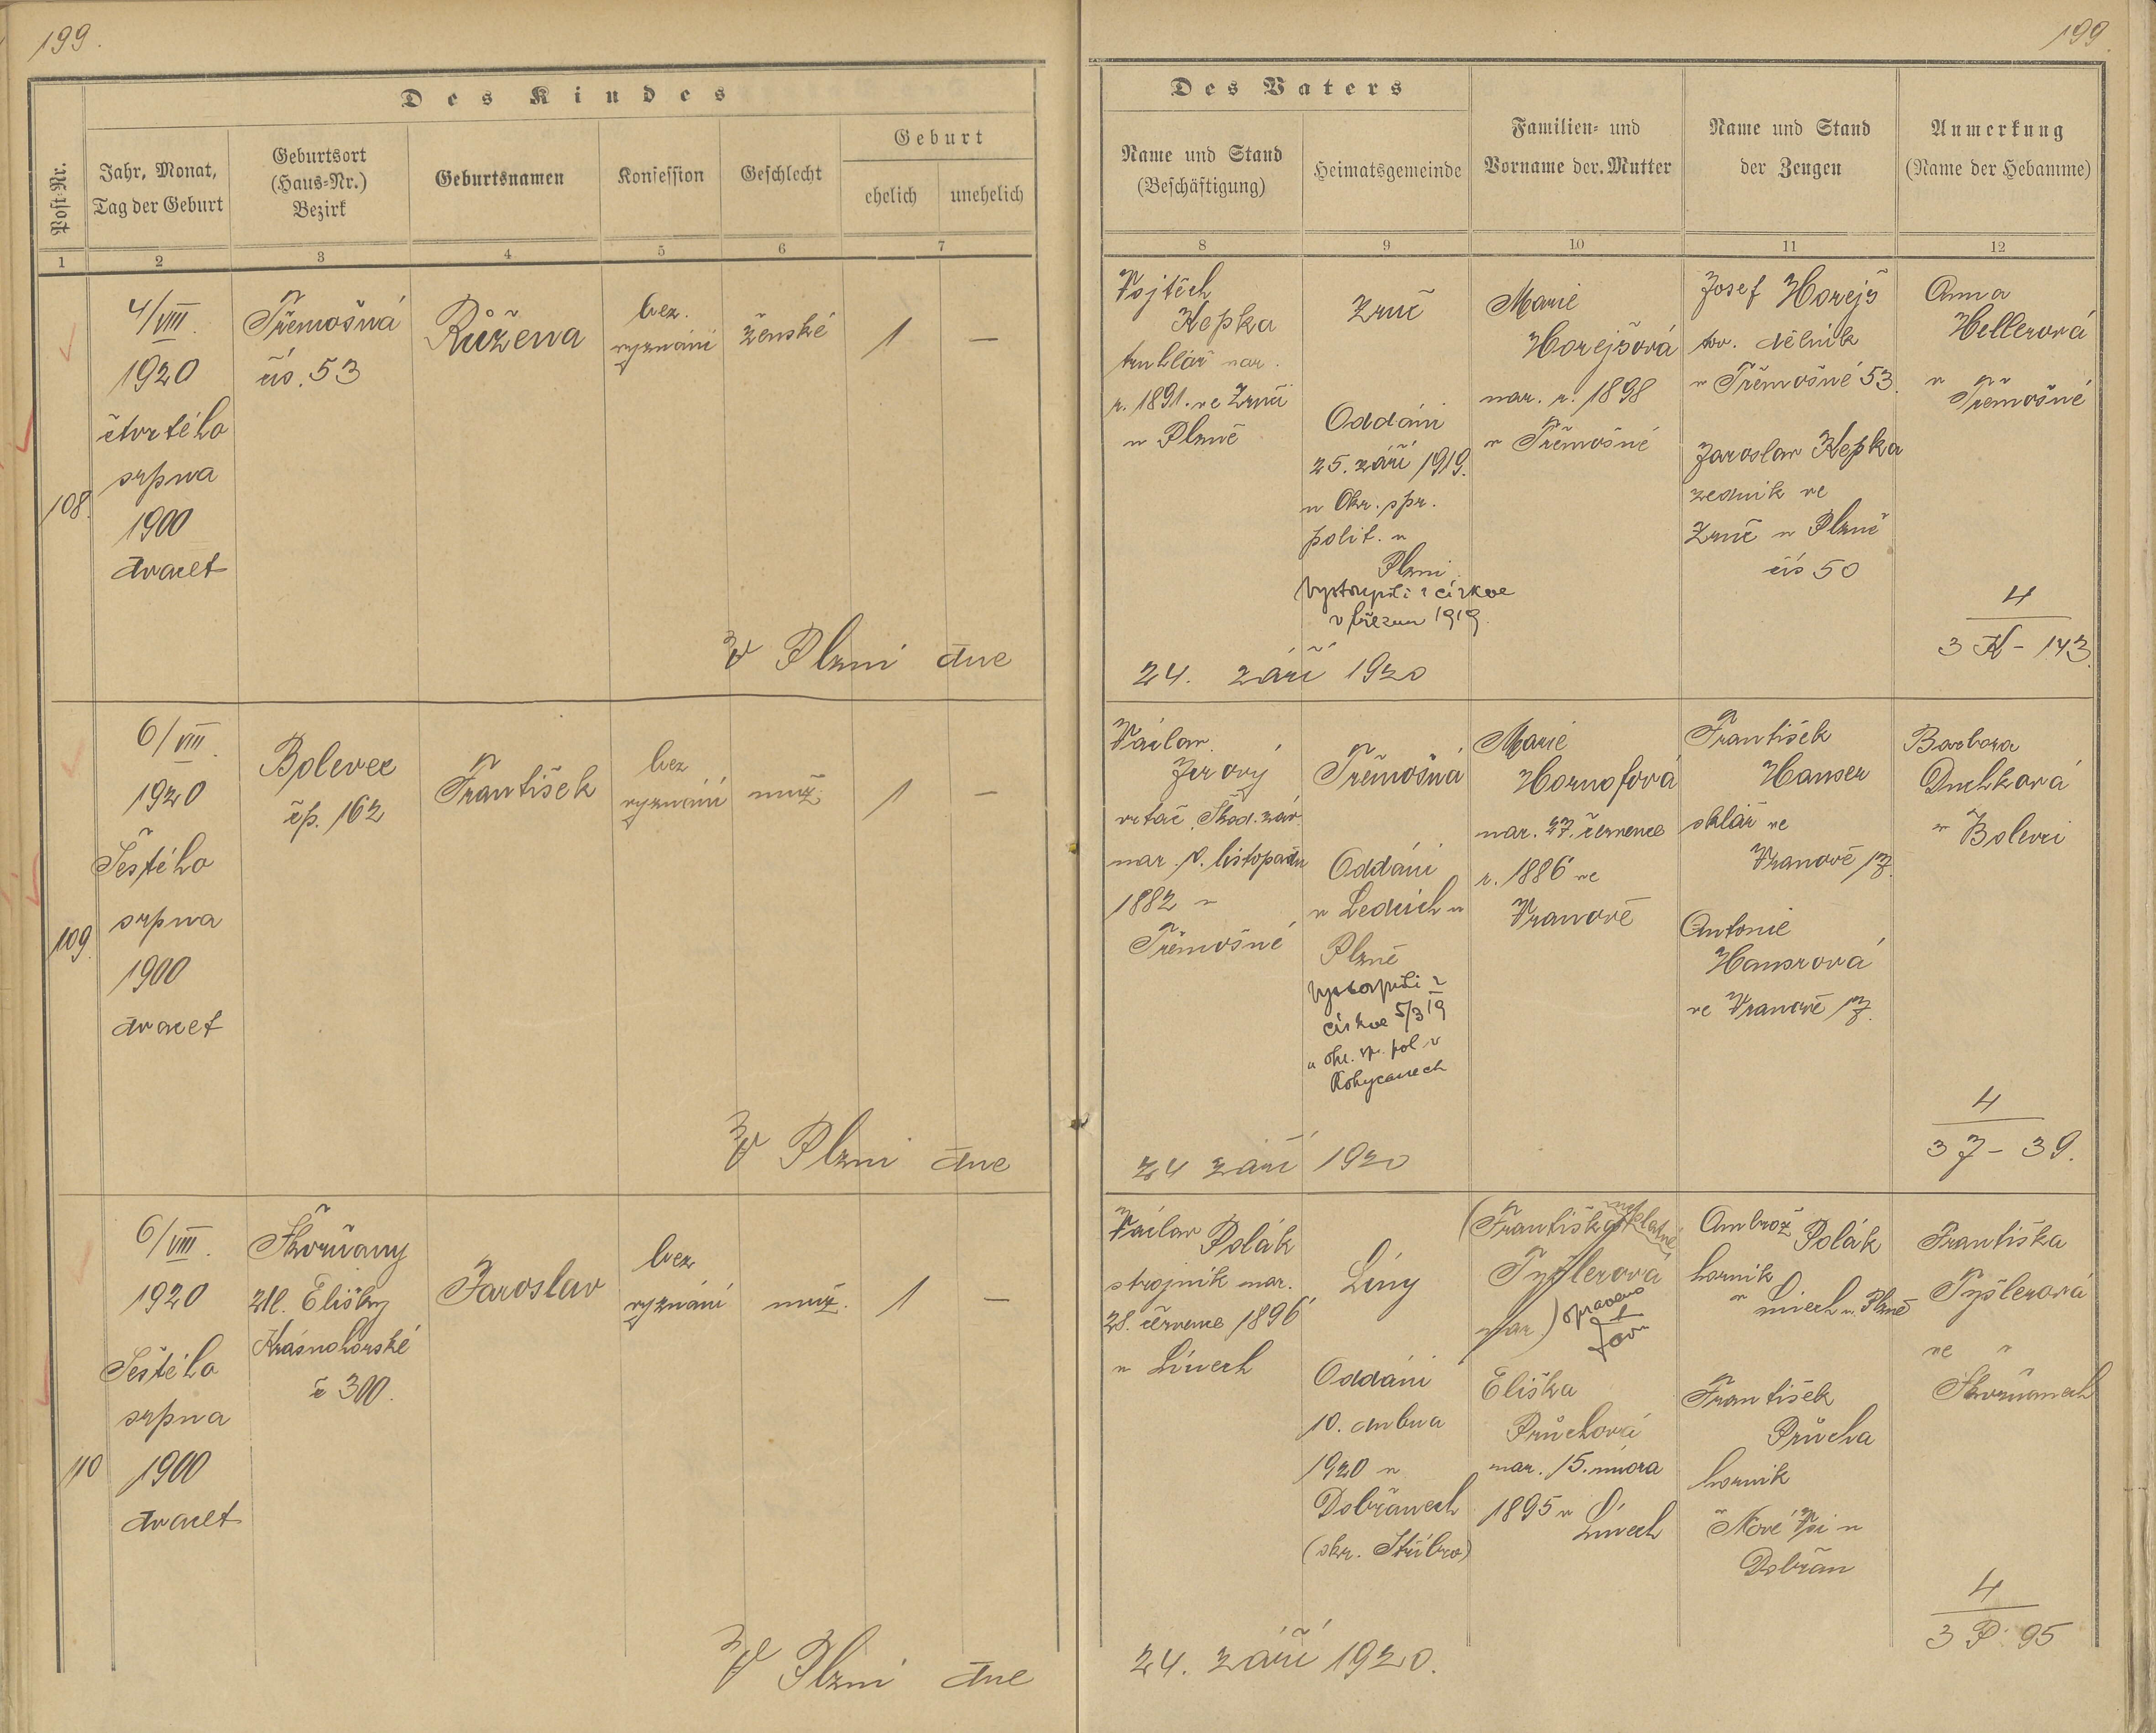 199.
199.
Des Kindes
Post-Nr.
Jahr, Monat,
Tag der Geburt
Geburtsort
(Haus-Nr.)
Bezirk
Geburtsnamen
Konfession
Geschlecht
Geburt
ehelich
unehelich
1
2
3
4
5
6
7
Des Vaters
Name und Stand
(Beschäftigung)
Heimatsgemeinde
Familien- und
Vorname der Mutter
Name und Stand
der Zeugen
Anmerkung
(Name der Hebamme)
8
9
10
11
12
108.
4/VIII.
1920
čtvrtého
srpna
1900
dvacet
Třemošná
čís. 53
Růžena
bez.
vyznání
ženské
1
—
Vojtěch
Kepka
truhlář nar.
r. 1891. ve Zruči
u Plzně
Zruč
Oddáni
25. září 1919.
u Okr. spr.
polit. v
Plzni
Vystoupili z církve
v březnu 1919.
Marie
Horejšová
nar. r. 1898
v Třemošné
Josef Horejš
tov. dělník
v Třemošné 53.
Jaroslav Kepka
zedník ve
Zruč u Plzně
čís 50
Anna
Hellerová
v
Třemošné
4
3 K - 143.
V Plzni dne
24. září 1920
109.
6/VIII.
1920
Šestého
srpna
1900
dvacet
Bolevec
čp. 162
František
bez
vyznání
muž.
1
—
Václav
Jirový
vrtač Škod. záv.
nar. 10. listopadu
1882 v
Třemošné
Třemošná
Oddáni
v Ledcích u
Plzně
Vystoupili z
církve 5/3 19
u okr. sp. pol v
Rokycanech
Marie
Hornofová
nar. 27. července
r. 1886 ve
Vranově
František
Hanser
sklář ve
Vranově 17.
Antonie
Hansrová
ve Vranově 17.
Barbora
Duchková
v Bolevci
4
3 J - 39.
V Plzni dne
24 září 1920
110
6/VIII.
1920
Šestého
srpna
1900
dvacet
Škvrňany
Ul. Elišky
Krásnohorské
č 300.
Jaroslav
bez
vyznání
muž.
1
—
Václav Polák
strojník nar.
28. července 1896
v Línech
Líny
Oddáni
10. dubna
1920 v
Dobřanech
(okr. Stříbro)
(Františka neplatné
Tyšlerová
nar.) opraveno
Eliška
Průchová
nar. 15. února
1895 v
Línech
Ambrož Polák
horník
v Línech u Plzně
František
Průcha
horník
v Nové Vsi u
Dobřan
Františka
Tyšlerová
ve
Škvrňanech
4
3 P. 95
V Plzni dne
24. září 1920.